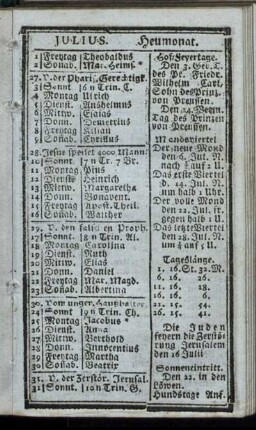 JULIUS. Heumonat.
1 Freytag Theobaldus
2 Soñab. Mar. Heims.
27. V. der Pharis. Gerechtigk.
3 Sonnt 6 n Trin. C.
4 Montag Ulrich
5 Dienst. Anshelmus
6 Mittw. Esaias
7 Donn. Demetrius
8 Freytag Kilian
9 Soñab. Cyrillus
28. Jesus speiset 4000 Mann
10 Sonnt 7 n Tr. 7 Br.
11 Montag Pius
12 Dienst Heinrich
13 Mittw. Margaretha
14 Donn. Bonavent.
15 Freytag Apost. Theil.
16 Soñab. Walther
29. V. den falschen Proph.
17 Sonnt. 8 n Trin. Al.
18 Montag Carolina
19 Dienst. Ruth
20 Mittw. Elias
21 Donn. Daniel
22 Freytag Mar. Magd.
23 Soñab. Albertina
30. Vom unger. Haushalter
24 Sonnt 9 n Trin. Ch.
25 Montag Jacobus
26 Dienst. Anna
27 Mittw. Berthold
28 Donn. Innocentius
29 Freytag Martha
30 Soñab. Beatrix
31. V. der Zerstör. Jerusal.
31 Sonnt. 10 n Trin. G.
Hof-Feyertage.
Den 3. Geb. T.
des Pr. Friedr.
Wilhelm Carl,
Sohn des Prinz.
von Preussen.
Den 24. Nam.
Tag des Prinzen
von Preussen.
Mandsviertel
Der neue Mond
den 6. Jul. N.
Das erste Viertel
d. 14. Jul. N.
um halb 1 Uhr.
Der volle Mond
den 22. Jul. fr.
gegen halb 1 U.
Das letzte Viertel
den 28. Jul. N.
Tageslänge.
1. 16. St. 32. M.
6. 16. 26.
11. 16. 18.
16. 16. 8.
21. 15. 54.
26. 15. 41.
Die Juden
feyern die Zerstö-
rung Jerusalem
den 16 Julii
Sonneneintritt.
Den 22. in den
Löwen.
Hundstage Anf.